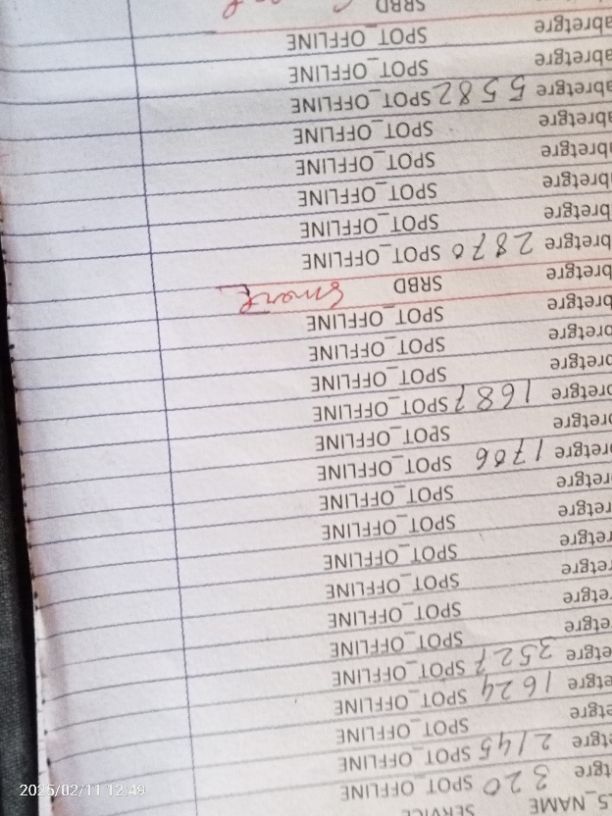 S_NAME SERVICE
tgre 320 SPOT_OFFLINE
etgre 2145 SPOT_OFFLINE
etgre SPOT_OFFLINE
etgre 1624 SPOT_OFFLINE
etgre 3527 SPOT_OFFLINE
etgre SPOT_OFFLINE
retgre SPOT_OFFLINE
retgre SPOT_OFFLINE
retgre SPOT_OFFLINE
retgre SPOT_OFFLINE
retgre SPOT_OFFLINE
retgre 1706 SPOT_OFFLINE
retgre SPOT_OFFLINE
retgre 1687 SPOT_OFFLINE
retgre SPOT_OFFLINE
bretgre SPOT_OFFLINE
bretgre SPOT_OFFLINE
bretgre SRBD Smart
bretgre 2870 SPOT_OFFLINE
bretgre SPOT_OFFLINE
abretgre SPOT_OFFLINE
abretgre SPOT_OFFLINE
abretgre SPOT_OFFLINE
abretgre 5582 SPOT_OFFLINE
abretgre SPOT_OFFLINE
abretgre SPOT_OFFLINE
SRBD
2025/02/11 12:49